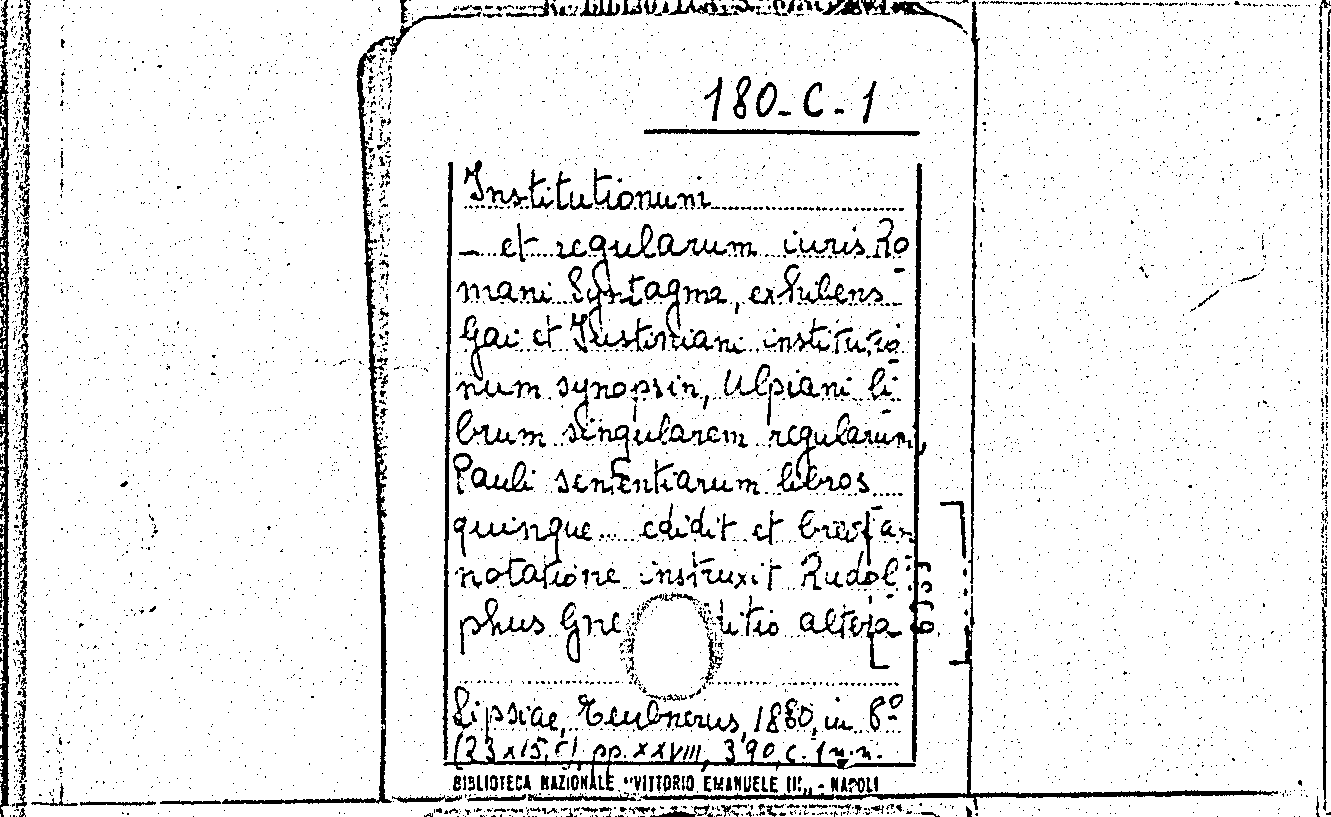 180-C-1
Institutionum
_ et regularum iuris Ro
mani Syntagma, exhibens
Gai et Iustiniani institutio
num synopsin, Ulpiani li
brum singularem regularum,
Pauli sententiarum libros
quinque... edidit et brevi an
notatione instruxit Rudol
phus Gne ditio altera
Lipsiae, Teubnerus, 1880, in 8º
(23x15,5), pp. XXVIII, 390, c. 1 n.n.
BIBLIOTECA NAZIONALE "VITTORIO EMANUELE III" - NAPOLI